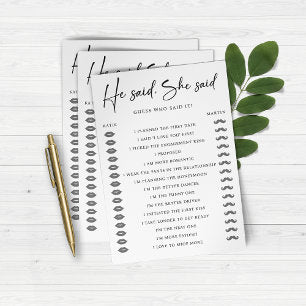 He said, She said
GUESS WHO SAID IT!
KATIE MARTIN
I PLANNED THE FIRST DATE
I SAID I LOVE YOU FIRST
I PICKED THE ENGAGEMENT RING
I PROPOSED
I AM MORE ROMANTIC
I WEAR THE PANTS IN THE RELATIONSHIP
I'M PLANNING THE HONEYMOON
I'M THE BETTER DANCER
I'M THE FUNNY ONE
I'M THE BETTER DRIVER
I INITIATED THE FIRST KISS
I TAKE LONGER TO GET READY
I'M THE NEAT ONE
I'M MORE PATIENT
I LOVE TO SHOP MORE